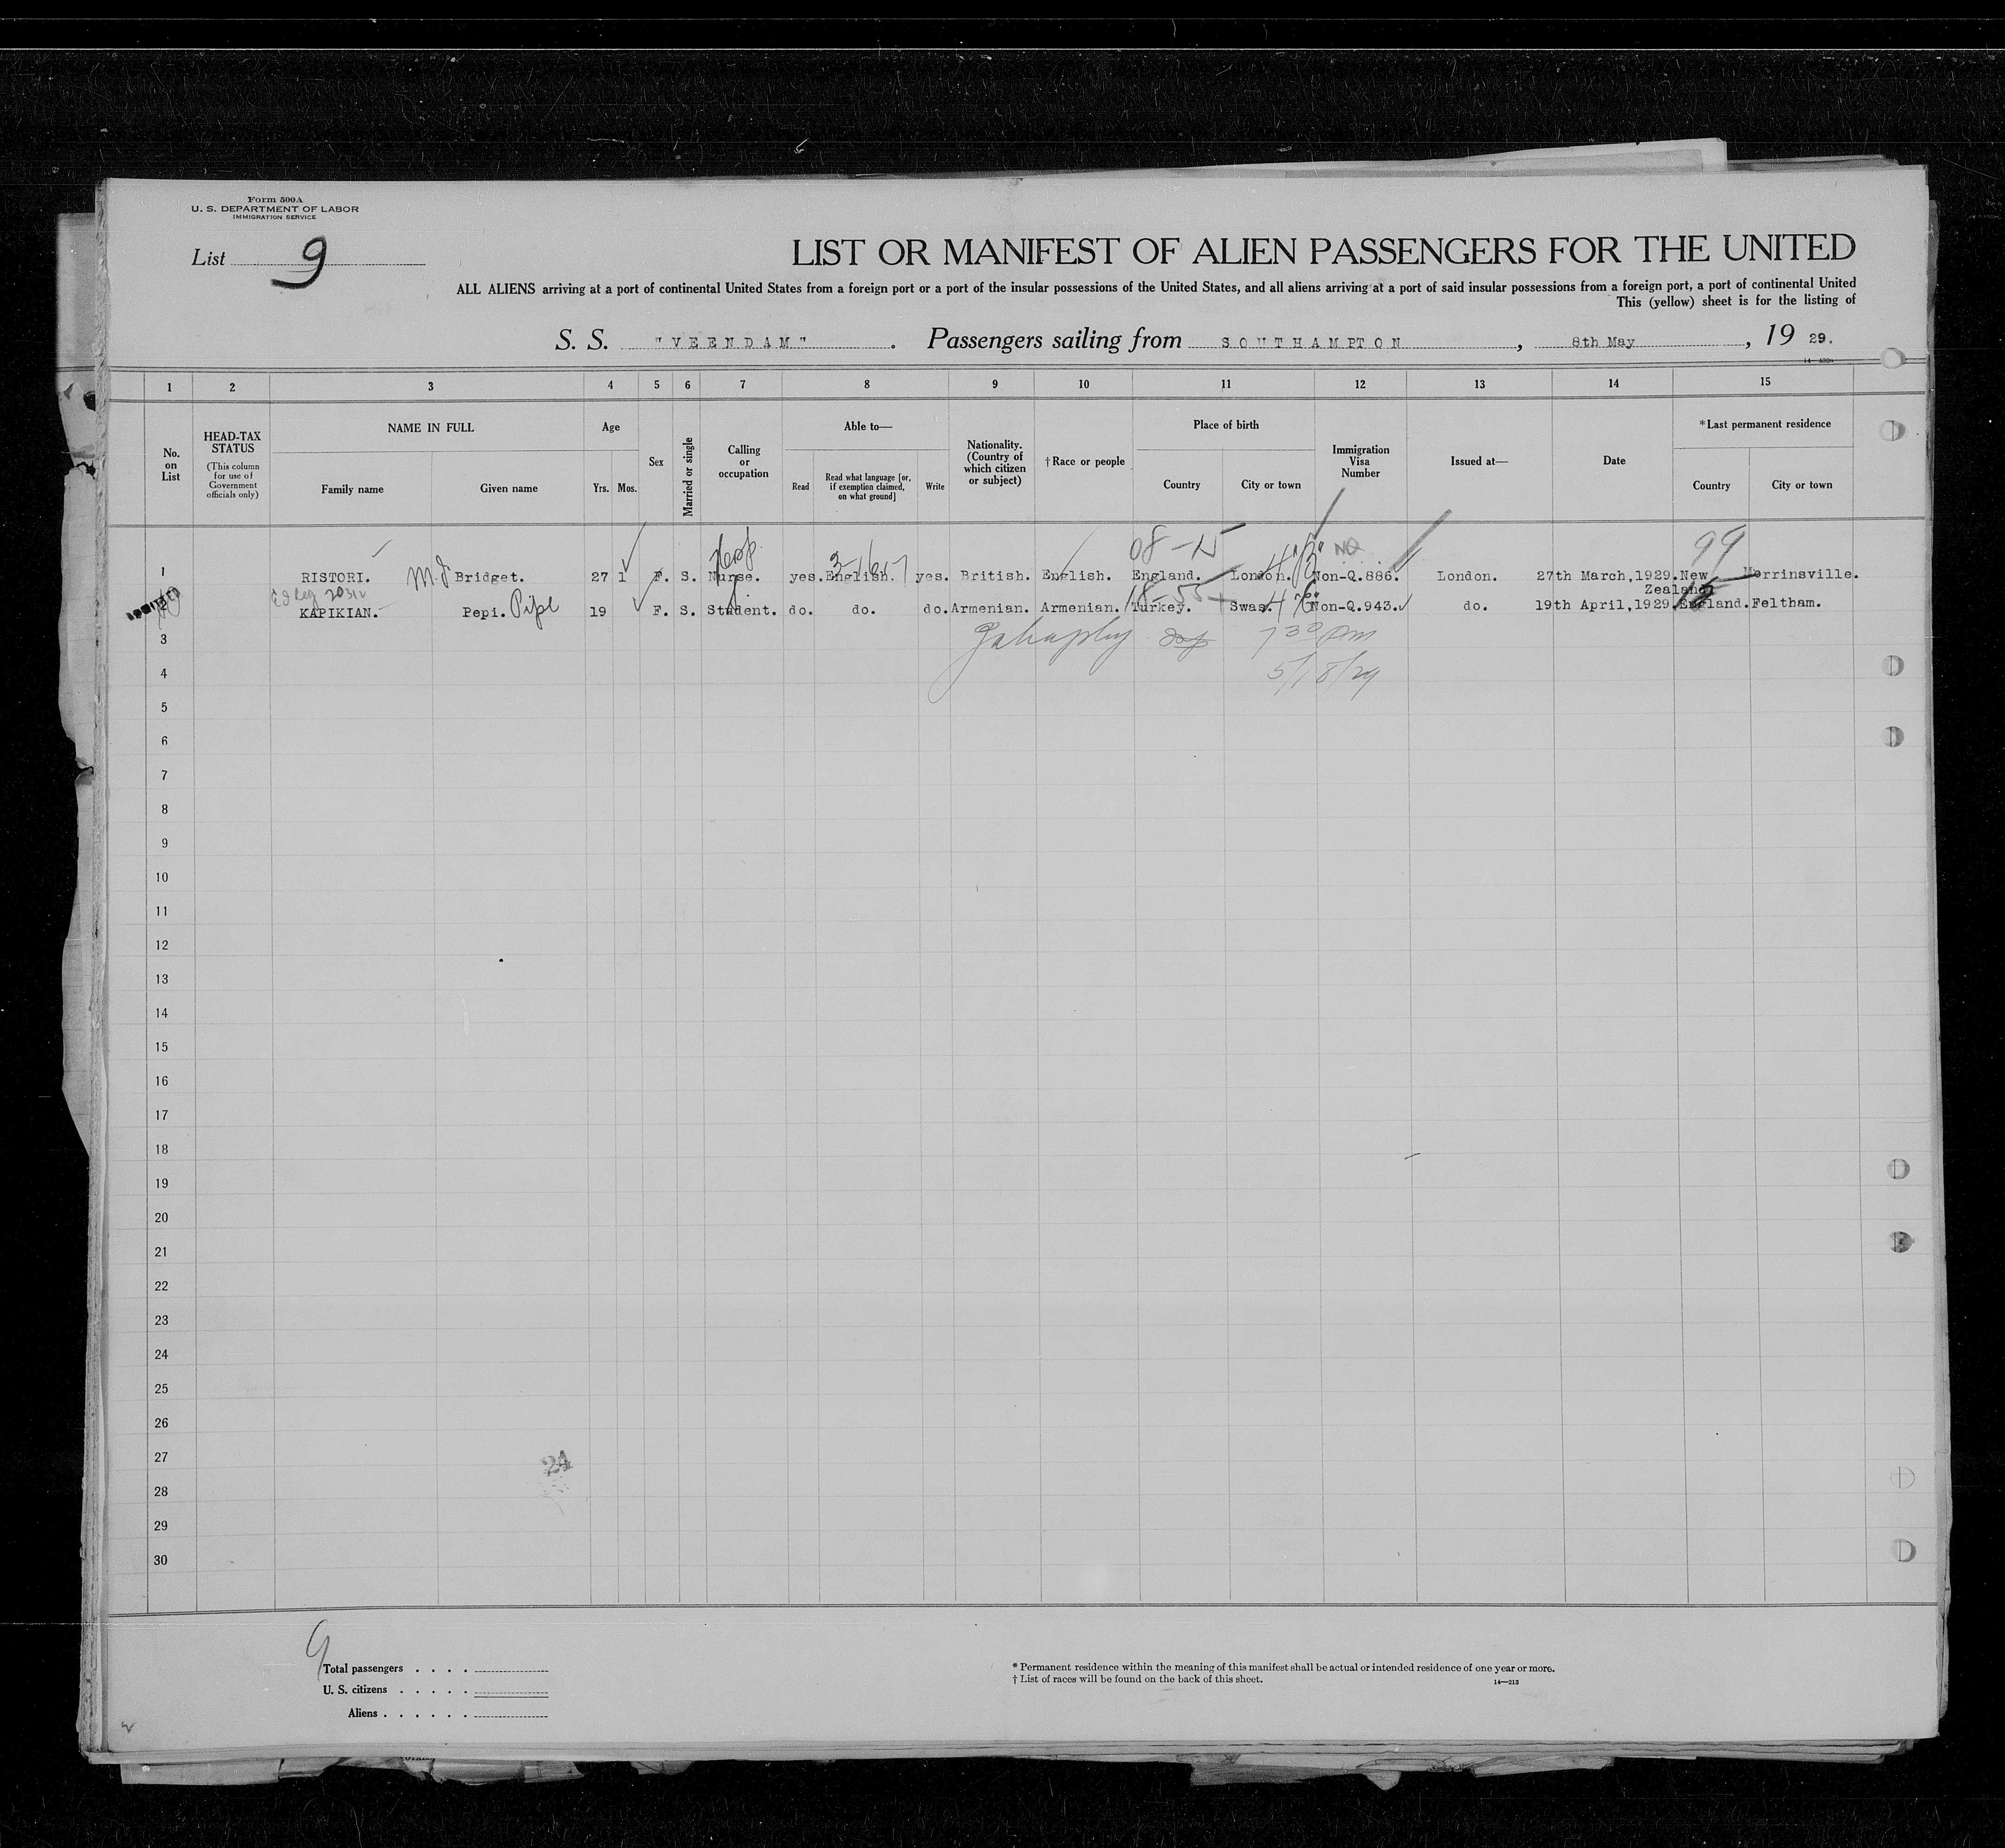 Form 500A
U. S. DEPARTMENT OF LABOR
IMMIGRATION SERVICE
List 9
LIST OR MANIFEST OF ALIEN PASSENGERS FOR THE UNITED
ALL ALIENS arriving at a port of continental United States from a foreign port or a port of the insular possessions of the United States, and all aliens arriving at a port of said insular possessions from a foreign port, a port of continental United
This (yellow) sheet is for the listing of
S. S. "VEENDAM". Passengers sailing from SOUTHAMPTON, 8th May, 19 29.
1 2 3 4 5 6 7 8 9 10 11 12 13 14 15
No. on List
HEAD-TAX STATUS
(This column for use of Government officials only)
NAME IN FULL
Family name Given name
Age
Yrs. Mos.
Sex
Married or single
Calling or occupation
Able to—
Read
Read what language [or, if exemption claimed, on what ground]
Write
Nationality. (Country of which citizen or subject)
†Race or people
Place of birth
Country City or town
Immigration Visa Number
Issued at—
Date
*Last permanent residence
Country City or town
08-15 NQ 99
1 RISTORI. Bridget. 27 1 F. S. Nurse. yes. English. yes. British. English. England. London. Non-Q.886. London. 27th March,1929. New Zealand Morrinsville.
2 KAPIKIAN. Pepi. 19 F. S. Student. do. do. do. Armenian. Armenian. Turkey. Swas. Non-Q.943. do. 19th April,1929. England. Feltham.
3 7 30 pm
4 5/18/29
5
6
7
8
9
10
11
12
13
14
15
16
17
18
19
20
21
22
23
24
25
26
27
24
28
29
30
9
Total passengers . . . .
U. S. citizens . . . . .
Aliens . . . . . .
* Permanent residence within the meaning of this manifest shall be actual or intended residence of one year or more.
† List of races will be found on the back of this sheet.
14—213